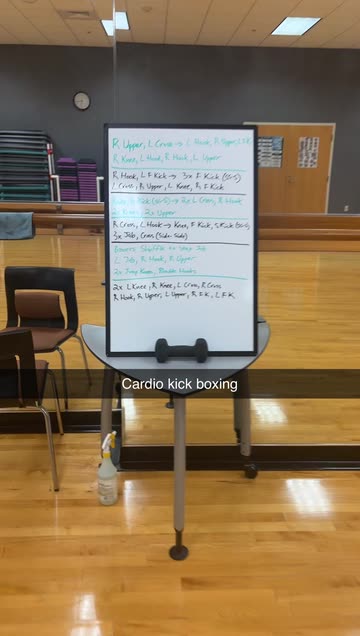 R Upper, L Cross → L Hook, R Upper, L F.K
R Knee, L Hook, R Hook, L Upper
R Hook, L F Kick → 3x F Kick (S-S)
L Cross, R Upper, L Knee, R F Kick
Kick (S-S) → 2x L Cross, R Hook
2x Knees, 2x Upper
R Cross, L Hook → Knee, F Kick, S Kick (S-S)
3x Jab, Cross (Side-Side)
Shuffle Jab
L Jab, R Hook, R Upper
2x Jump Knee, Double Hooks
2x L Knee, R Knee, L Cross, R Cross
R Hook, R Upper, L Upper, R F.K, L F.K.
Cardio kick boxing